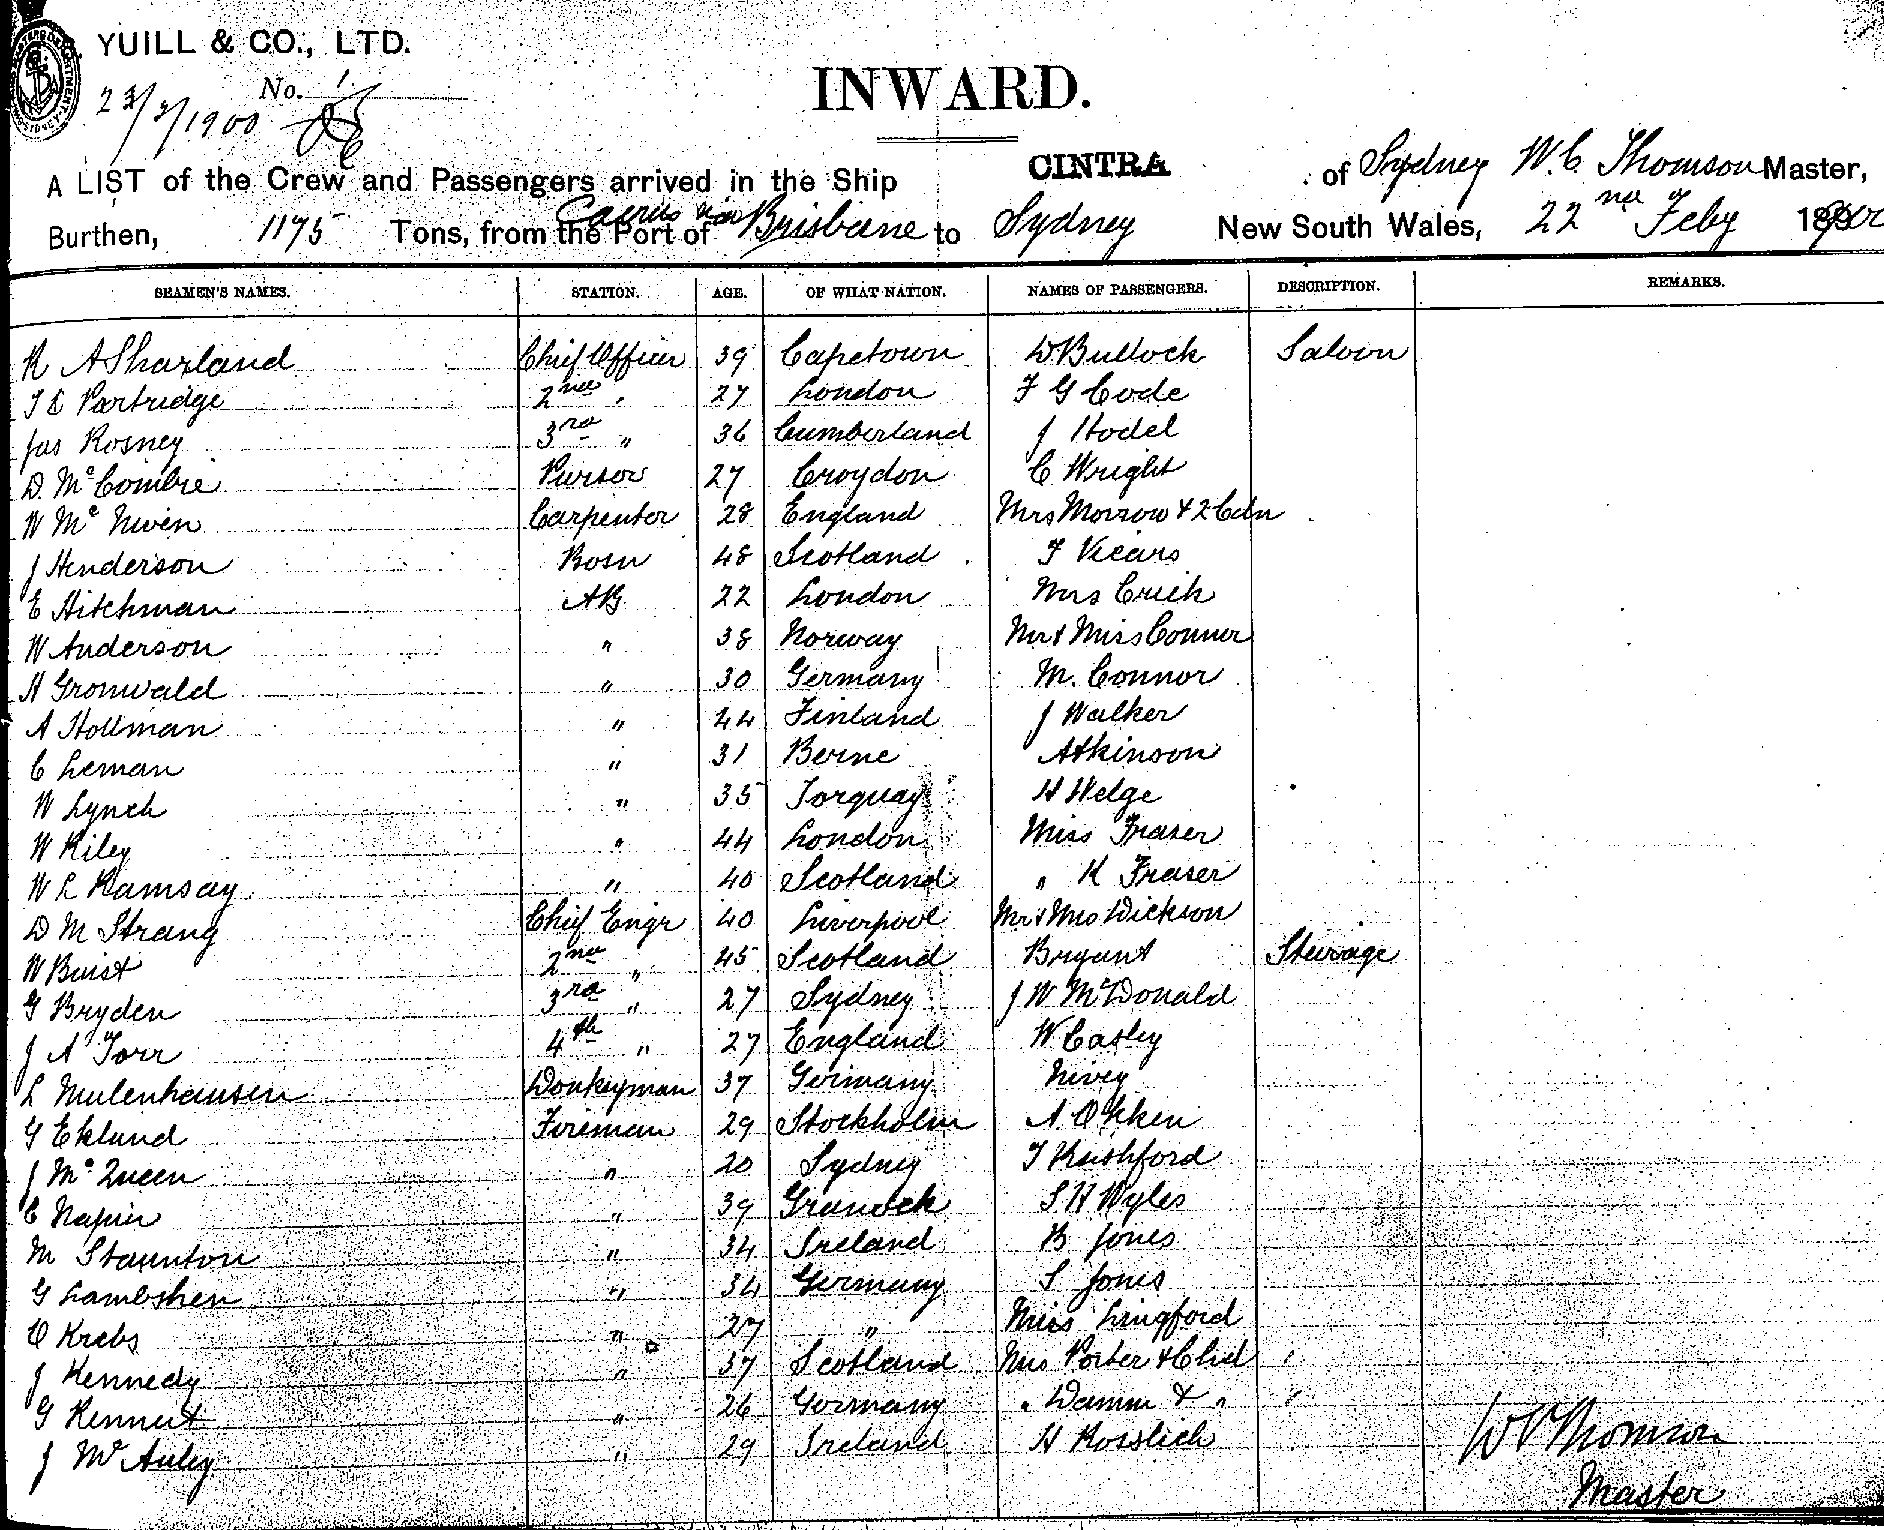 YUILL & CO., LTD.
No. 1
23/2/1900
INWARD.
A LIST of the Crew and Passengers arrived in the Ship CINTRA of Sydney W. C. Thomson Master,
Burthen, 1175 Tons, from the Port of Cairns via Brisbane to Sydney New South Wales, 22nd Feby 1900
SEAMEN'S NAMES. STATION. AGE. OF WHAT NATION. NAMES OF PASSENGERS. DESCRIPTION. REMARKS.
R A Sharland Chief Officer 39 Capetown D Bullock Saloon
T E Partridge 2nd " 27 London F G Code
Jas Rosney 3rd " 36 Cumberland J Hodel
D. McCombie Purser 27 Croydon C Wright
W McNiven Carpenter 28 England Mrs Morrow & 2 Cdn
J Henderson Bosn 48 Scotland F Vicars
E Hitchman AB 22 London Mrs Crick
W Anderson " 38 Norway Mr & Miss Connor
H Gronwald " 30 Germany M. Connor
A Hollman " 44 Finland J Walker
C Leman " 31 Berne Atkinson
W Lynch " 35 Torquay H Welge
W Riley " 44 London Miss Fraser
W L Ramsay " 40 Scotland " K Fraser
D M Strang Chief Engr 40 Liverpool Mr & Mrs Dickson
W Buist 2nd " 45 Scotland Bryant Sterage
G Bryden 3rd " 27 Sydney J W McDonald
J A Torr 4th " 27 England W Casley
L Mulenhausen Donkeyman 37 Germany Nivey
G Eklund Fireman 29 Stockholm A Okken
J McQueen " 20 Sydney T Rushford
C Napier " 39 Granock S H Wyles
M Staunton " 34 Ireland B Jones
G Lambshen " 34 Germany S Jones
O Krebs " 27 " Miss Lingford
J Kennedy " 37 Scotland Mrs Porter & Chd "
G Kennut " 26 Germany " Damm & " "
J McAuley " 29 Ireland H Rosslich
W C Thomson
Master